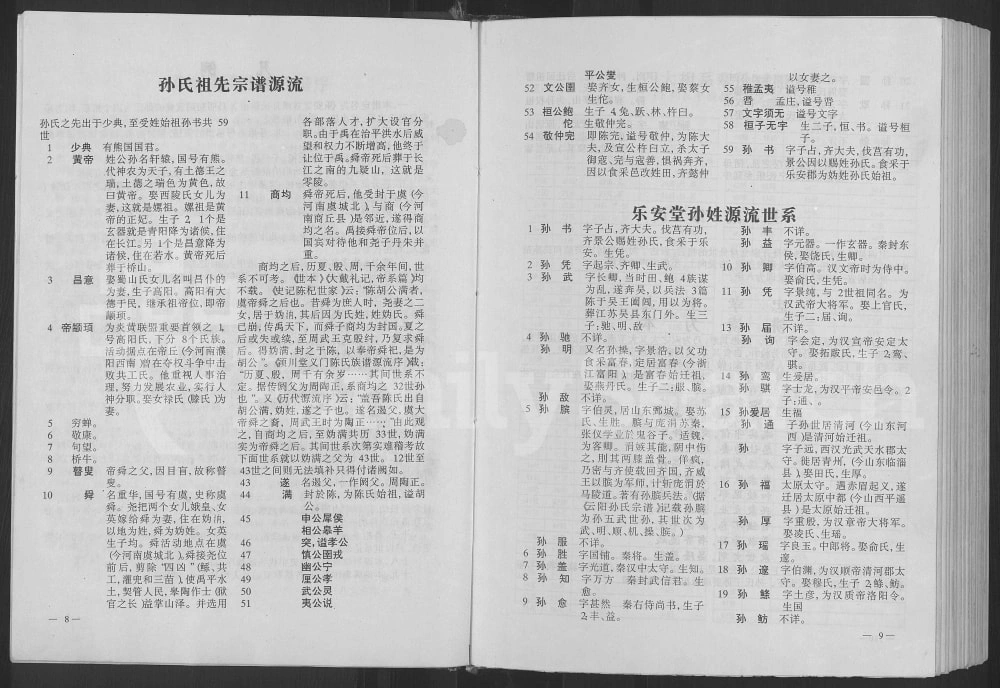 孙氏祖先宗谱源流
孙氏之先出于少典,至受姓始祖孙书共 59
世
1 少典 有熊国国君。
2 黄帝 姓公孙名轩辕,国号有熊。
代神农为天子,有土德王之
瑞,土德之瑞色为黄色,故
曰黄帝。娶西陵氏女儿为
妻,这就是嫘祖。嫘祖是黄
帝的正妃。生子 2 1个是
玄嚣就是青阳降为诸侯,住
在长江。另 1个是昌意降为
诸侯,住在若水。黄帝死后
葬于桥山。
3 昌意 娶蜀山氏女儿名叫昌仆的
为妻,生子高阳。高阳有大
德于民,继承祖帝位,即帝
颛顼。
4 帝颛顼 为炎黄联盟重要首领之 1,
号高阳氏,下分 8个氏族。
活动据点在帝丘(今河南濮
阳西南)曾在夺权斗争中击
败共工氏。他重视人事治
理,努力发展农业,实行人
神分职。娶女禄氏(滕氏)为
妻。
5 穷蝉。
6 敬康。
7 句望。
8 桥牛。
9 瞽叟 帝舜之父,因目盲,故称瞽
叟。
10 舜 名重华,国号有虞,史称虞
舜。尧把两个女儿娥皇、女
英嫁给舜为妻,住在妫汭,
以地为姓,舜为妫姓。女英
生子均。舜活动地点在虞
(今河南虞城北),舜接尧位
前后,剪除“四凶”(鲧、共
工,灌兜和三苗),使禹平水
土,契管人民,皋陶作士(狱
官之长)益掌山泽。并选用
各部落人才,扩大设官分
职。由于禹在治平洪水后威
望和权力不断增高,他终于
让位于禹。舜帝死后葬于长
江之南的九疑山,这就是
零陵。
11 商均 舜帝死后,他受封于虞(今
河南虞城北),与商(今河
南商丘县)是邻近,遂得商
均之名。禹接舜帝位后,以
国宾对待他和尧子丹朱并
重。
商均之后,历夏、殷、周,千余年间,世
系不可考。《世本》《大戴礼记,帝系篇》均
不载。《史记陈杞世家》云:“陈胡公满者,
虞帝舜之后也。昔舜为庶人时,尧妻之二
女,居于妫汭,其后因为氏姓,姓妫氏。舜
已崩,传禹天下,而舜子商均为封国。夏之
后或失或续,至周武王克殷纣,乃复求舜
后。得妫满,封之于陈,以奉帝舜祀,是为
胡公”。《颍川堂义门陈氏族谱源流序》载:
“历夏、殷、周千有余岁……其间世系不
定。据传阏父为周陶正,系商均之 32世孙
也”。又《历代源流序》云:“盖吾陈氏出自
胡公满,妫姓,遂之子也。遂名遏父,虞大
帝舜之裔,周武王时为陶正……”由此观
之,自商均之后,至妫满共历 33世,妫满
实为帝舜之后。其间世系次第实难稽考故
下面世系就以妫满之父为 43世。12世至
43世之间则无法填补只得付诸阙如。
43 遂 名遏父,一作阏父。周陶正。
44 满 封於陈,为陈氏始祖,谥胡
公。
45 申公犀侯
相公皋羊
46 突,谥孝公
47 慎公圉戎
48 幽公宁
49 厘公孝
50 武公灵
51 夷公说
— 8 —
平公燮
52 文公圉 娶齐女,生桓公鲍,娶蔡女
生佗。
53 桓公鲍 生子 4:免、跃、林、杵臼。
佗 生敬仲完。
54 敬仲完 即陈完,谥号敬仲,为陈大
夫,及宣公杵臼立,杀太子
御寇、完与寇善,惧祸奔齐,
因以食采邑改姓田,齐懿仲
以女妻之。
55 稚孟夷 谥号稚
56 孟庄,谥号
57 文子须无 谥号文字
58 桓子无宇 生二子,恒、书。谥号桓
子。
59 孙 书 字子占,齐大夫,伐莒有功,
景公因以赐姓孙氏。食采于
乐安郡为妫姓孙氏始祖。
乐安堂孙姓源流世系
1 孙 书 字子占,齐大夫。伐莒有功,
齐景公赐姓孙氏,食采于乐
安。生凭。
2 孙 凭 字起宗、齐卿、生武。
3 孙 武 字长卿,当时田、鲍 4族谋
为乱,遂奔吴,以兵法 3篇
陈于吴王阖闾,用以为将。
葬江苏吴县东门外。生三
子:驰、明、敌
4 孙 驰 不详。
孙 明 又名孙操,字景浩,以父功
食采富春,定居富春(今浙
江富阳),是富春始迁祖,
娶燕丹氏。生子二:服、膑。
孙 敌 不详。
5 孙 膑 字伯灵,居山东鄄城。娶苏
氏、生胜。膑与庞涓苏秦,
张仪学业於鬼谷子。适魏,
为客卿。涓嫉其能,阴中伤
之,刖其两膝盖骨。佯疯,
乃密与齐使载回齐国,齐威
王以膑为军师,计斩庞涓於
马陵道。著有孙膑兵法。《据
《云阳孙氏宗谱》记载孙膑
为孙五武世孙,其世次为
武、明、顺、机、操、膑。)
孙 服 不详。
6 孙 胜 字国铺。秦将。生盖。
7 孙 盖 字光道,秦汉中太守。生知。
8 孙 知 字万方 秦封武信君。生
愈。
9 孙 愈 字甚然 秦右侍尚书,生子
2:丰、益。
孙 丰 不详。
孙 益 字元器。一作玄器。秦封东
侯,娶饶氏,生卿。
10 孙 卿 字伯高。汉文帝时为侍中。
娶俞氏,生凭。
11 孙 凭 字景纯,与 2世祖同名。为
汉武帝大将军。娶上官氏,
生子二:届、询。
13 孙 届 不详。
孙 询 字会定,为汉宣帝安定太
守。娶拓跋氏,生子 2:鸾、
骐。
14 孙 鸾 生爱居。
孙 骐 字士龙,为汉平帝安邑令。2
子:通、。
15 孙爱居 生福
孙 通 子孙世居清河(今山东河
西)是清河始迁祖。
孙 字子远,西汉光武天水郡太
守。徙居青州,(今山东临淄
县),娶田氏,生厚。
16 孙 福 太原太守。遇赤眉起义,遂
迁居太原中都(今山西平遥
县)是太原始迁祖。
孙 厚 字重殷,为汉章帝大将军。
娶凌氏、生瑶。
17 孙 瑶 字良玉。中郎将。娶俞氏,生
邃。
18 孙 邃 字伯渊,为汉顺帝清河郡太
守。娶穆氏,生子 2:鲦、鲂。
19 孙 鲦 字士彦,为汉质帝洛阳令。
生国
孙 鲂 不详。
— 9 —